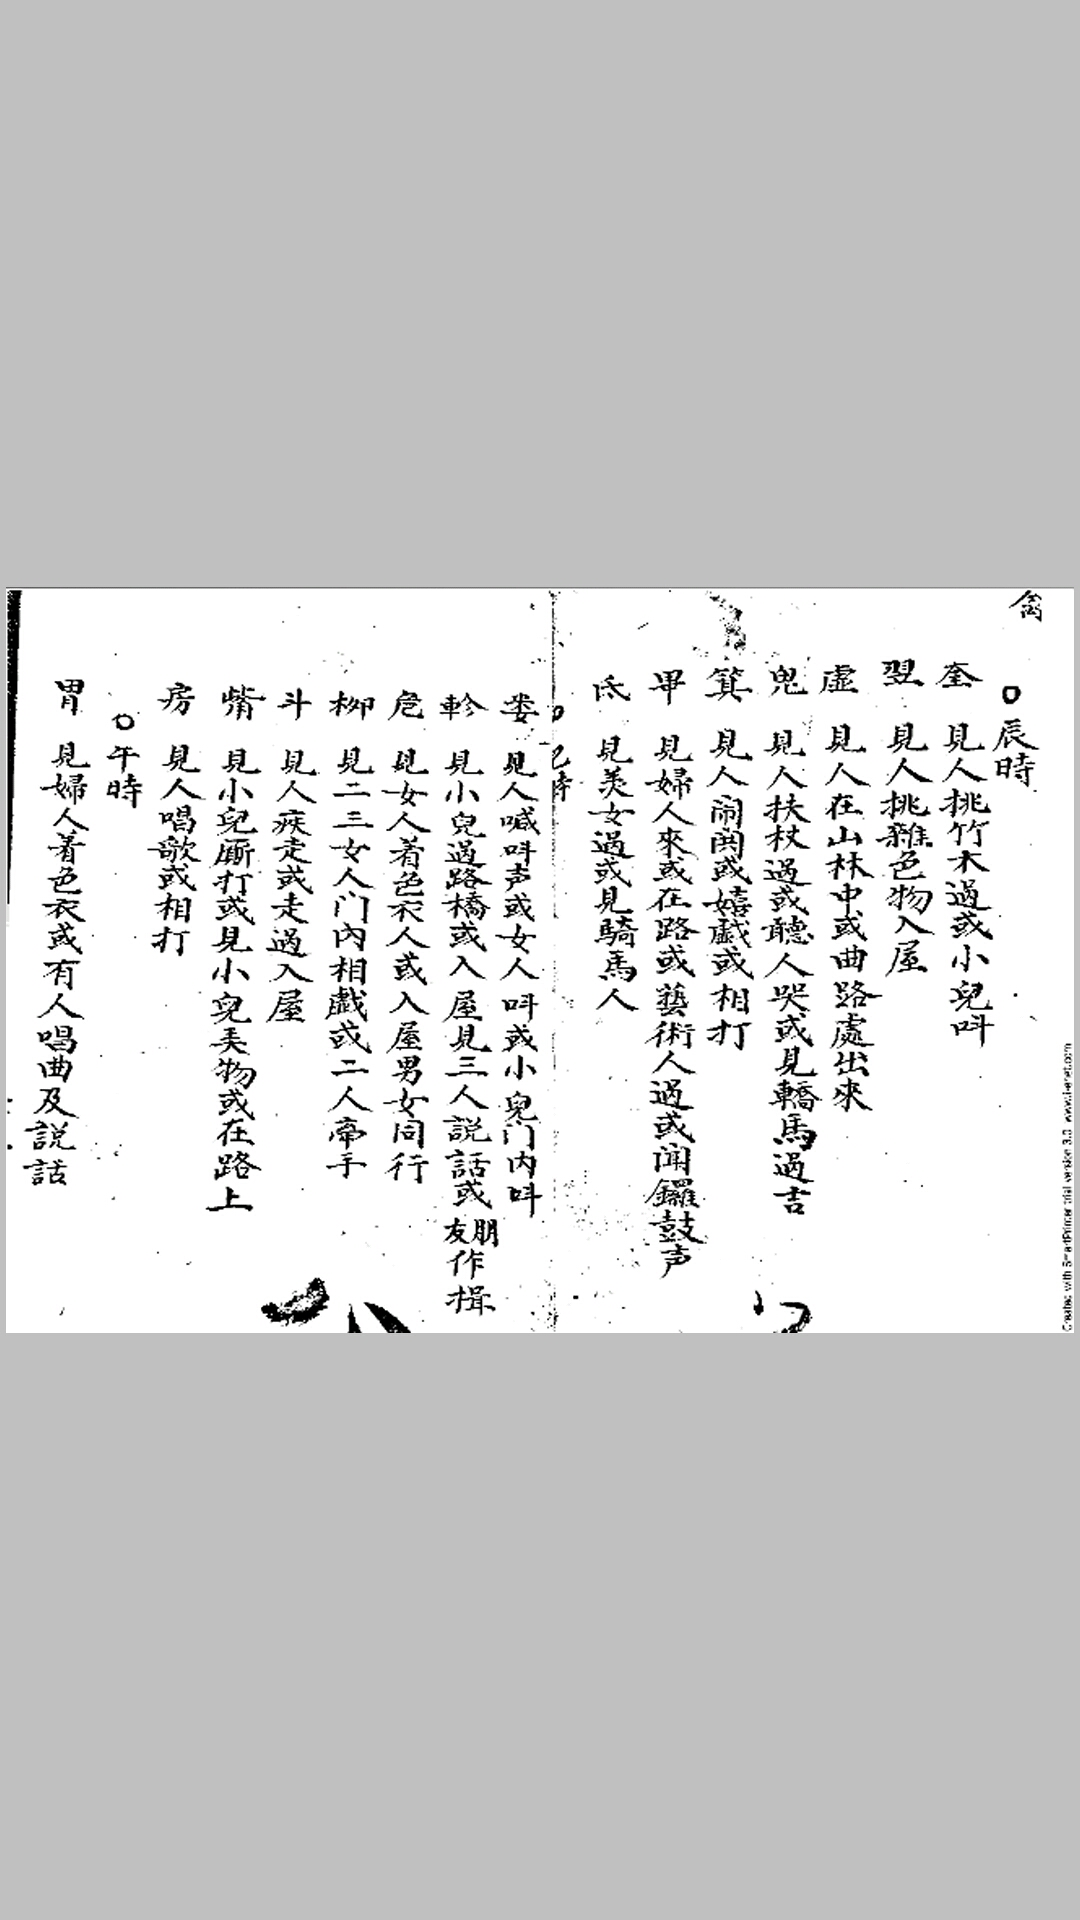 禽
○辰時
奎 見人挑竹木過或小兒呌
翌 見人挑雜色物入屋
虚 見人在山林中或曲路處出來
鬼 見人扶杖過或聽人哭或見轎馬過吉
箕 見人闹闵或嬉戯或相打
畢 見婦人來或在路或藝術人過或闻鑼鼓声
氐 見美女過或見騎馬人
○巳時
娄 見人喊呌声或女人呌或小兒门内呌
軫 見小兒過路橋或入屋見三人說話或朋友作揖
危 見女人着色衣人或入屋男女同行
柳 見二三女人门內相戯或二人牵手
斗 見人疾走或走過入屋
觜 見小兒厮打或見小兒美物或在路上
房 見人唱歌或相打
○午時
胃 見婦人着色衣或有人唱曲及說話